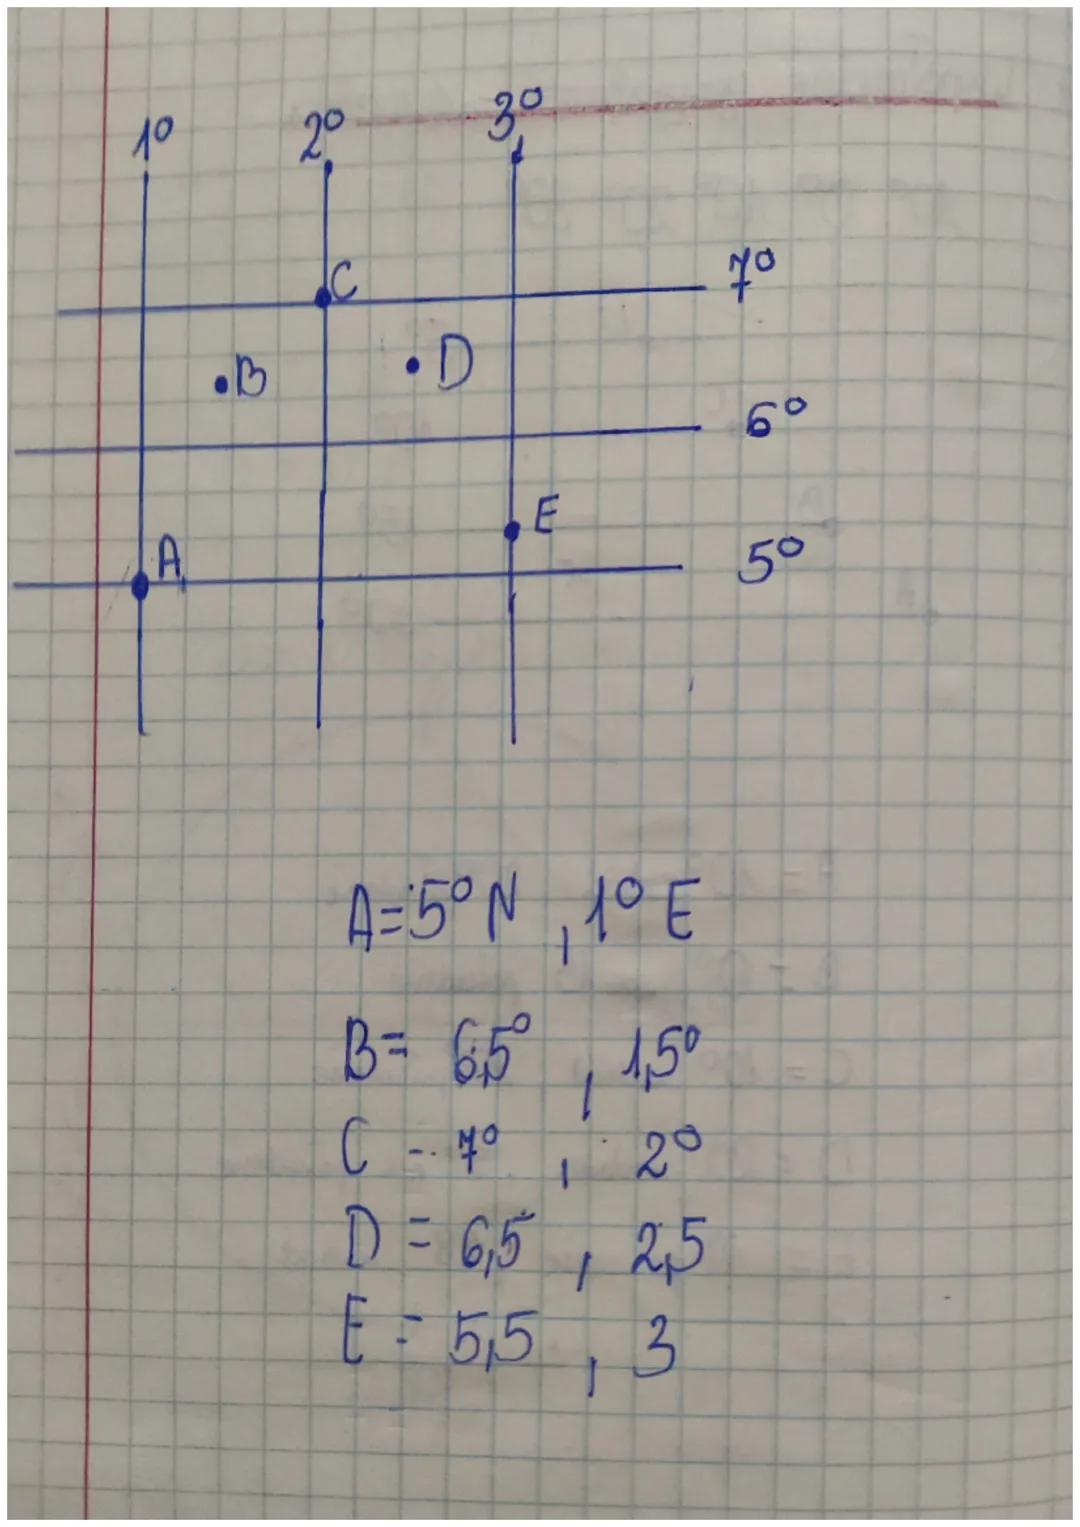 1° 2° 3°
C 7°
B D
6°
E
A 5°
A=5° N , 1° E
B= 6,5° , 1,5°
C - 7° , 2°
D = 6,5 , 2,5
E = 5,5 , 3